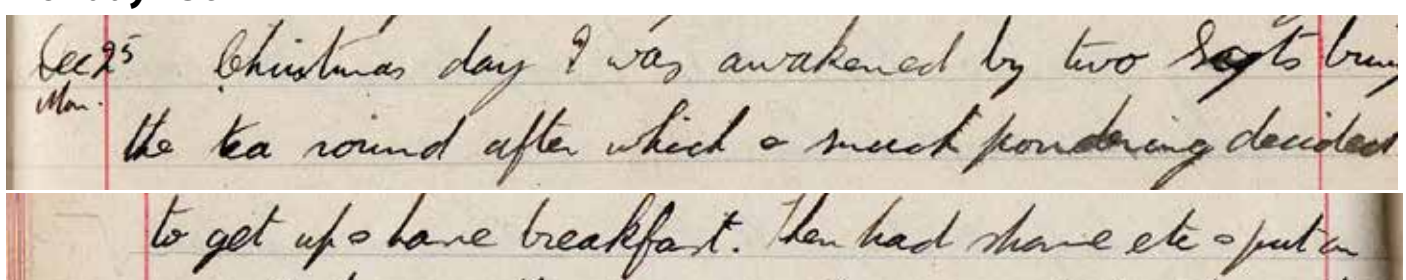 Dec 25 Christmas day I was awakened by two Sgts bring
Mon.
the tea round after which & much pondering decided
to get up & have breakfast. Then had shave etc & put on